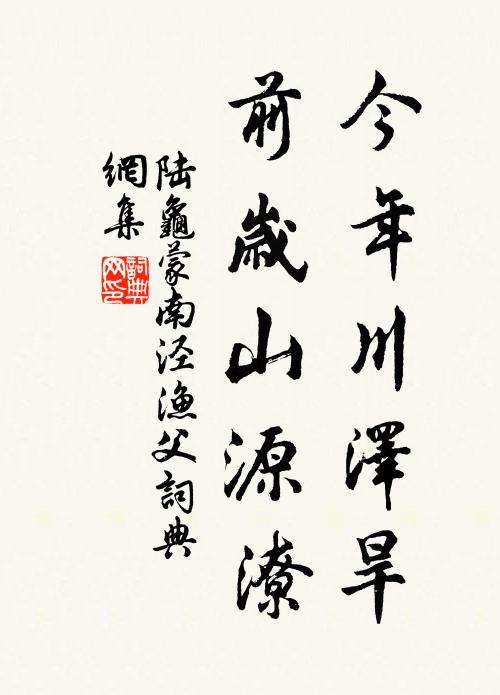 今年川澤旱
前歲山源潦
陆龜蒙南泾漁父詞典
網集
詞典網印